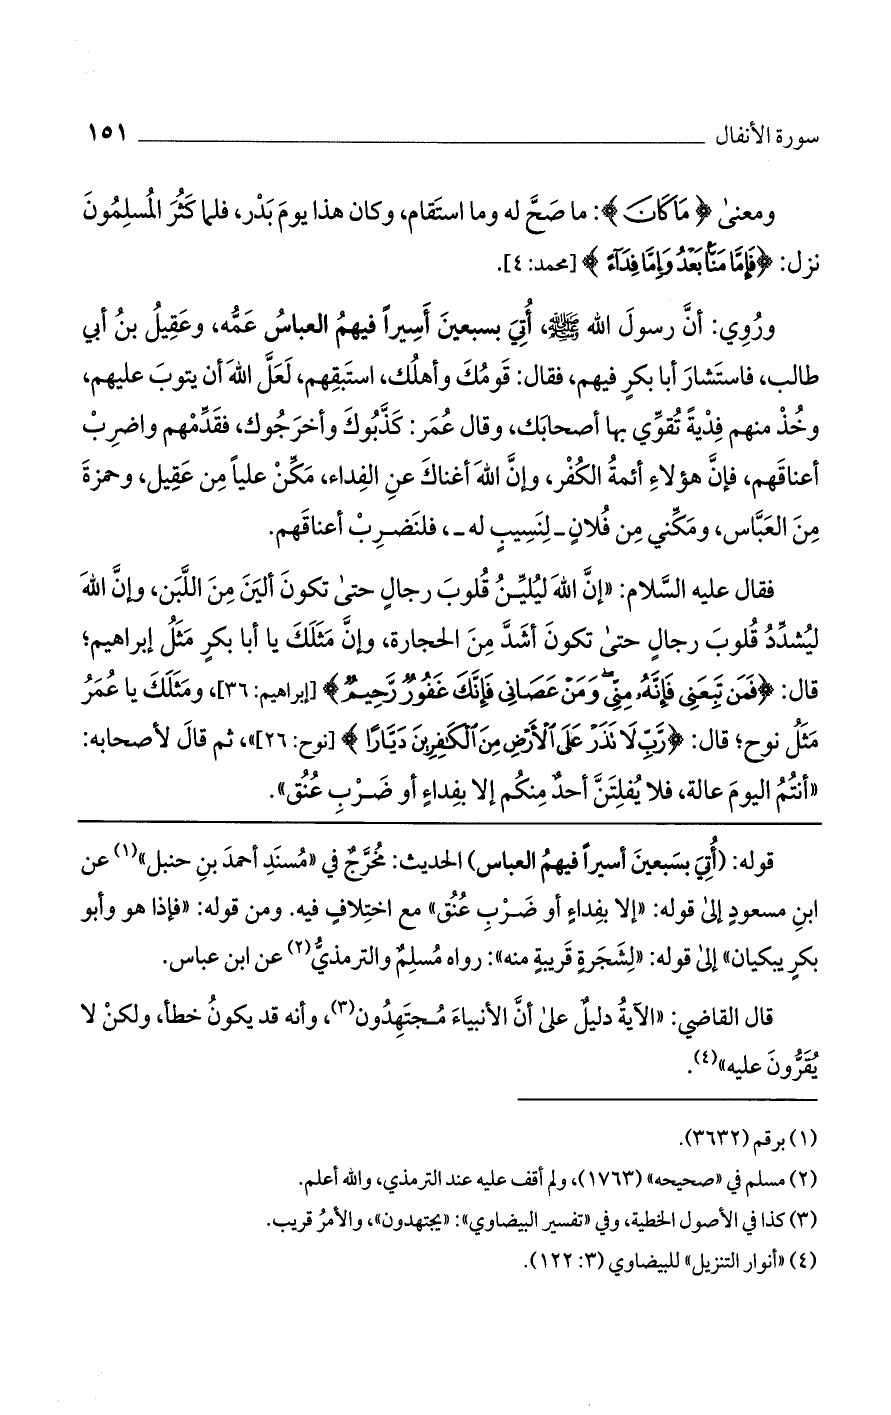 سورة الأنفال ١٥١
ومعنىٰ ﴿ مَا كَانَ ﴾: ما صَحَّ له وما استَقام، وكان هذا يومَ بَدْر، فلما كَثُرَ المُسلِمُونَ
نزل: ﴿فَإِمَّا مَنًّا بَعْدُ وَإِمَّا فِدَآءً ﴾ [محمد: ٤].
ورُوِي: أنَّ رسولَ الله ﷺ، أُتِيَ بسبعينَ أَسِيراً فيهمُ العباسُ عَمُّه، وعَقِيلُ بنُ أبي
طالب، فاستَشارَ أبا بكرٍ فيهم، فقال: قَومُكَ وأهلُك، استَبقِهم، لَعَلَّ اللهَ أن يتوبَ عليهم،
وخُذْ منهم فِدْيةً تُقوِّي بها أصحابَك، وقال عُمَر: كَذَّبُوكَ وأخرَجُوك، فقَدِّمْهم واضرِبْ
أعناقَهم، فإنَّ هؤلاءِ أئمةُ الكُفْر، وإنَّ اللهَ أغناكَ عنِ الفِداء، مَكِّنْ علياً مِن عَقِيل، وحمزةَ
مِنَ العَبَّاس، ومَكِّني مِن فُلانٍ ـ لِنَسِيبٍ له ـ، فلنَضرِبْ أعناقَهم.
فقال عليه السَّلام: «إنَّ اللهَ ليُليِّنُ قُلوبَ رجالٍ حتىٰ تكونَ ألينَ مِنَ اللَّبَن، وإنَّ اللهَ
ليُشدِّدُ قُلوبَ رجالٍ حتىٰ تكونَ أشَدَّ مِنَ الحجارة، وإنَّ مَثَلَكَ يا أبا بكرٍ مَثَلُ إبراهيم؛
قال: ﴿فَمَن تَبِعَنِى فَإِنَّهُۥ مِنِّى ۖ وَمَنْ عَصَانِى فَإِنَّكَ غَفُورٌ رَّحِيمٌ﴾ [إبراهيم: ٣٦]، ومَثَلَكَ يا عُمَرُ
مَثَلُ نوح؛ قال: ﴿رَّبِّ لَا تَذَرْ عَلَى ٱلْأَرْضِ مِنَ ٱلْكَٰفِرِينَ دَيَّارًا ﴾ [نوح: ٢٦]»، ثم قالَ لأصحابه:
«أنتُمُ اليومَ عالة، فلا يُفلِتَنَّ أحدٌ مِنكُم إلا بفِداءٍ أو ضَرْبِ عُنُق».
قوله: (أُتِيَ بسَبعينَ أسيراً فيهمُ العباس) الحديث: مُخرَّجٌ في «مُسنَدِ أحمدَ بنِ حنبل»(١) عن
ابنِ مسعودٍ إلىٰ قوله: «إلا بفِداءٍ أو ضَرْبِ عُنُق» مع اختِلافٍ فيه. ومن قوله: «فإذا هو وأبو
بكرٍ يبكيان» إلىٰ قوله: «لِشَجَرةٍ قَريبةٍ منه»: رواه مُسلِمٌ والترمذيُّ(٢) عن ابن عباس.
قال القاضي: «الآيةُ دليلٌ علىٰ أنَّ الأنبياءَ مُجتَهِدُون(٣)، وأنه قد يكونُ خطأ، ولكنْ لا
يُقَرُّونَ عليه»(٤).
(١) برقم (٣٦٣٢).
(٢) مسلم في «صحيحه» (١٧٦٣)، ولم أقف عليه عند الترمذي، والله أعلم.
(٣) كذا في الأصول الخطية، وفي «تفسير البيضاوي»: «يجتهدون»، والأمرُ قريب.
(٤) «أنوار التنزيل» للبيضاوي (٣: ١٢٢).